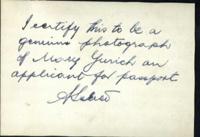 I certify this to be a
genuine photograph
of Mary Gurich an
applicant for passport